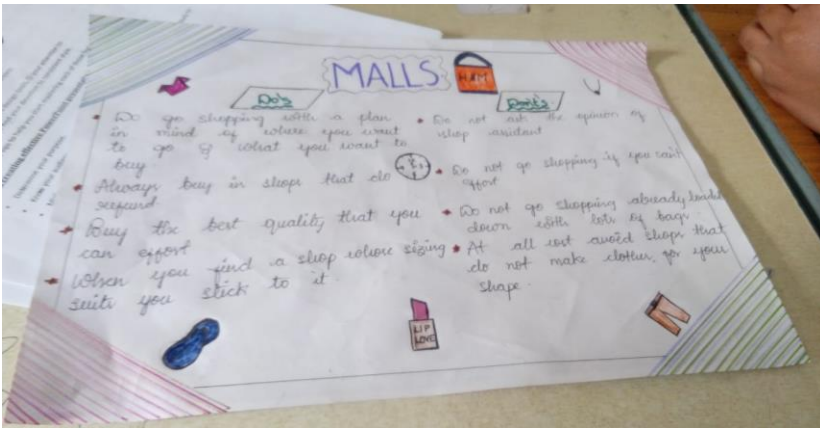 MALLS
H&M
Do's
Do go shopping with a plan
in mind of where you want
to go & what you want to
buy
Always buy in shops that do
refund
Buy the best quality that you
can effort
When you find a shop whose sizing
suits you stick to it.
Dont's
Do not ask the opinion of
shop assistant
Do not go shopping if you can't
effort
Do not go shopping already loaded
down with lots of bags.
At all cost avoid shops that
do not make clothes for your
shape.
LIP
LOVE